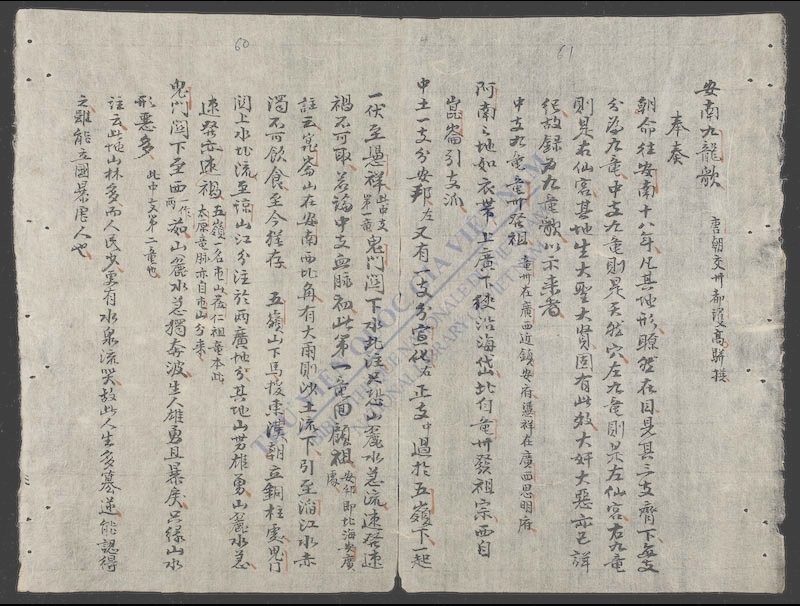 安南九龍歌 唐朝交州都護高駢撰
奉奏
朝命往安南十八年凡其地形瞭然在目見其三支齊下每支
分為九竜中支九竜則是天然穴左九竜則是左仙宮右九竜
則是右仙宮其地生大聖大賢固有此效大奸大惡亦已詳
經故錄為九竜歌以示来者
中支九竜竜州發祖 竜州在廣西近鎮安府憑祥在廣西思明府
阿南之地如衣帶上廣下狹沿海岱北自竜州發祖宗西自
崑崙引支派
中土一支分安邦左又有一支分宣化右正支中過於五嶺下一起
一伏至憑祥 此中支第一竜 鬼門関下水北注只恐山麄水急流速發速
禍不可取若論中支血脉初此第一竜回顧祖 安邦即北海安廣處
註云崑崙山在安南西北角有大雨則沙土流下引至淄江水赤
濁不可飲食至今猶存 五嶺山下馬援東漢朝立銅柱處鬼门
関上水北流至諒山江分注於兩廣地分其地山势雄勇山麄水急
速發亦速禍 五嶺一名屯山茲仁祖竜本此太原竜脉亦自屯山分来
鬼門関下至一西 一作两 茹山麄水急獨奔波生人雄勇且暴戾只緣山水
形惡多 此中支第二竜也
註云此地山林多而人民少更有水泉流哭故此人生多篡逆能認得
之雖能立國暴虐人也
60
61
THƯ VIỆN QUỐC GIA VIỆT NAM
BIBLIOTHEQUE NATIONALE DU VIETNAM
NATIONAL LIBRARY OF VIETNAM